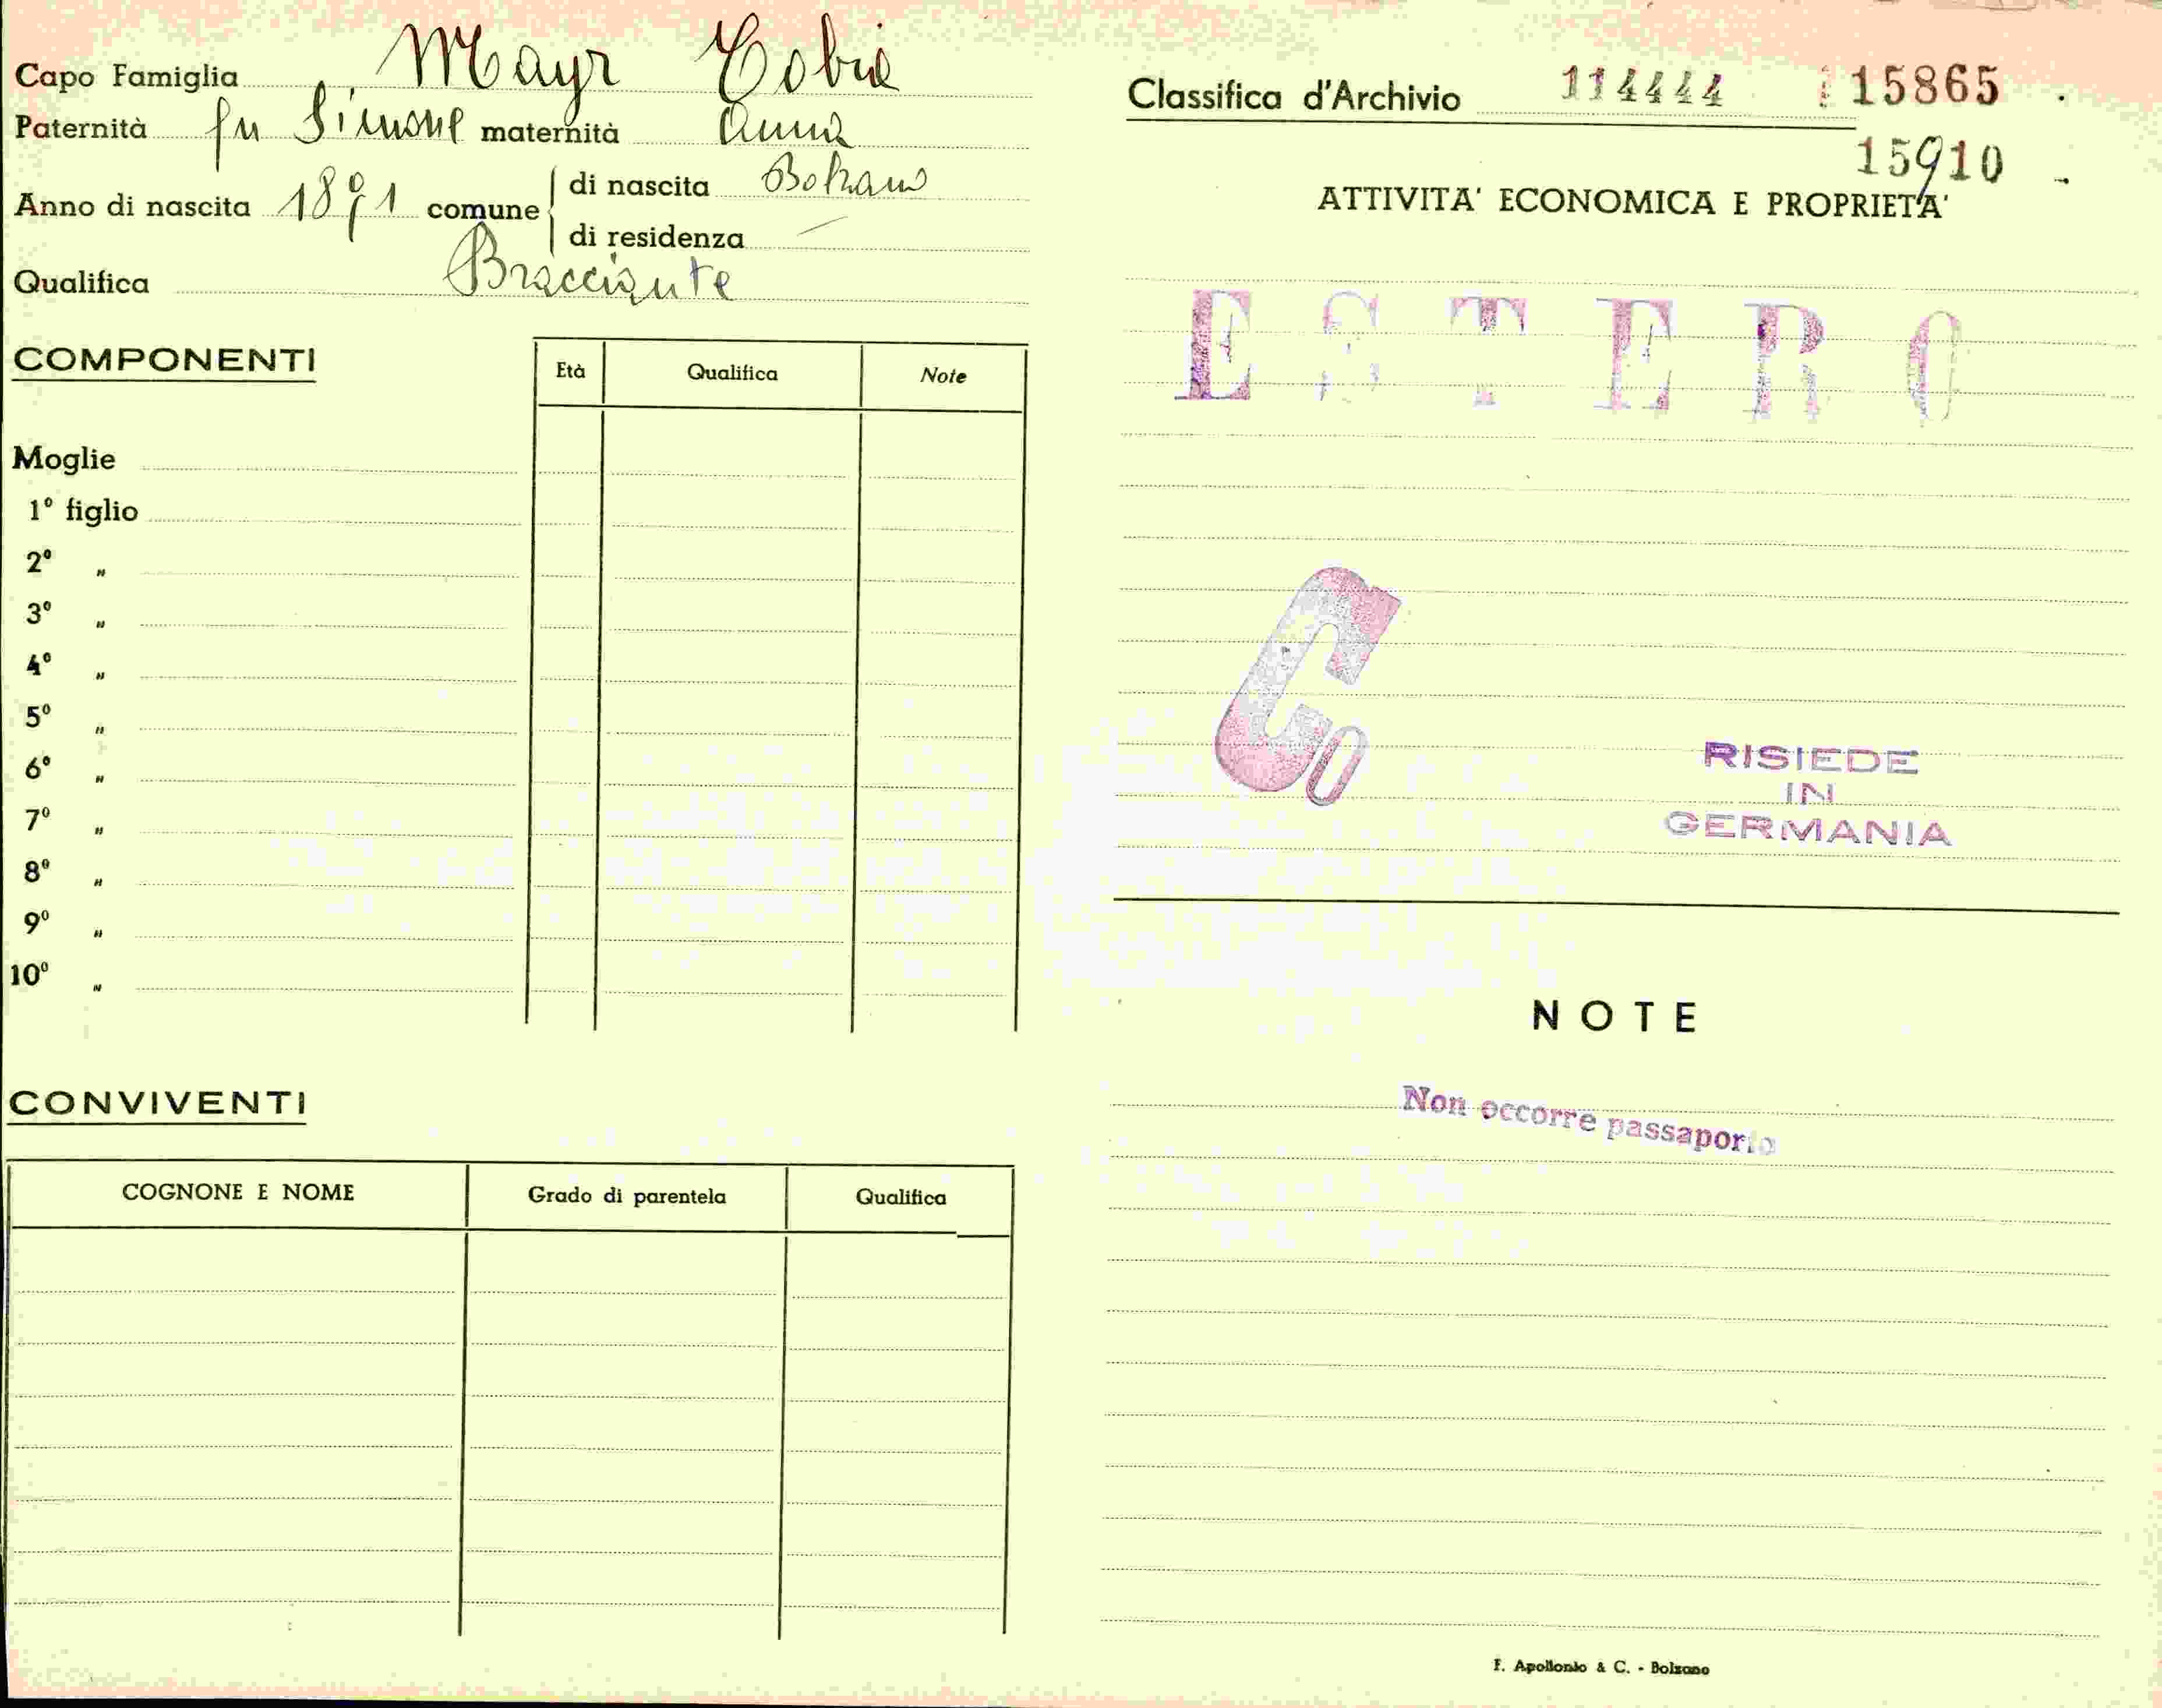 Capo Famiglia Mayr Tobia
Paternità fu Simone maternità Anna
Anno di nascita 1891 comune di nascita Bolzano
di residenza —
Qualifica Bracciante
COMPONENTI
Età Qualifica Note
Moglie
1º figlio
2º „
3º „
4º „
5º „
6º „
7º „
8º „
9º „
10º „
CONVIVENTI
COGNONE E NOME Grado di parentela Qualifica
Classifica d'Archivio 114444 15865
15910
ATTIVITA' ECONOMICA E PROPRIETA'
ESTERO
Co
RISIEDE
IN
GERMANIA
NOTE
Non occorre passaporto
F. Apollonio & C. - Bolzano